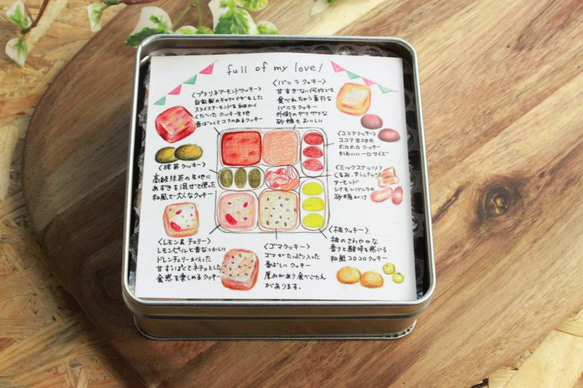 full of my love!
<プラリネアーモンドクッキー>
自家製のキャラメルがけをした
スライスアーモンドを細かく
くだいたクッキー生地
香ばしくてコクのあるクッキー
<バニラクッキー>
甘すぎない何枚でも
食べれちゃう素朴な
バニラクッキー
外側のザラザラな
砂糖もおいしい
<ココアクッキー>
ココア生地の
ホロホロクッキー
かわいい一口サイズ
<抹茶クッキー>
高級抹茶の生地に
あずきを混ぜて使った
和風で大人なクッキー
<ミックスナッツ>
くるみ、カシューナッツ
アーモンド
シナモンバニラの
砂糖がけ
<レモン&チェリー>
レモンピールと昔なつかしい
ドレンチェリーが入った
甘ずっぱくてネチッとした
食感を楽しめるクッキー
<ゴマクッキー>
ゴマがたっぷり入った
香ばしいクッキー
厚みがあり食べごたえ
があります。
<柚クッキー>
柚のさわやかな
香りと酸味を感じる
和風コロコロクッキー